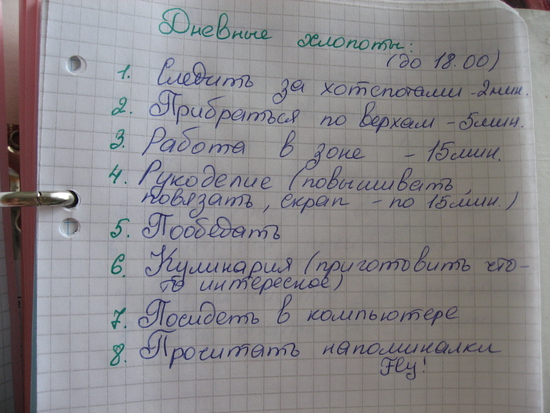 Дневные хлопоты:
(до 18.00)
1. Следить за хотспотами - 2 мин.
2. Прибраться по верхам - 5 мин.
3. Работа в зоне - 15 мин.
4. Рукоделие (повышивать,
повязать, скрап - по 15 мин.)
5. Пообедать
6. Кулинария (приготовить что-
то интересное)
7. Посидеть в компьютере
8. Прочитать напоминалки
Fly!